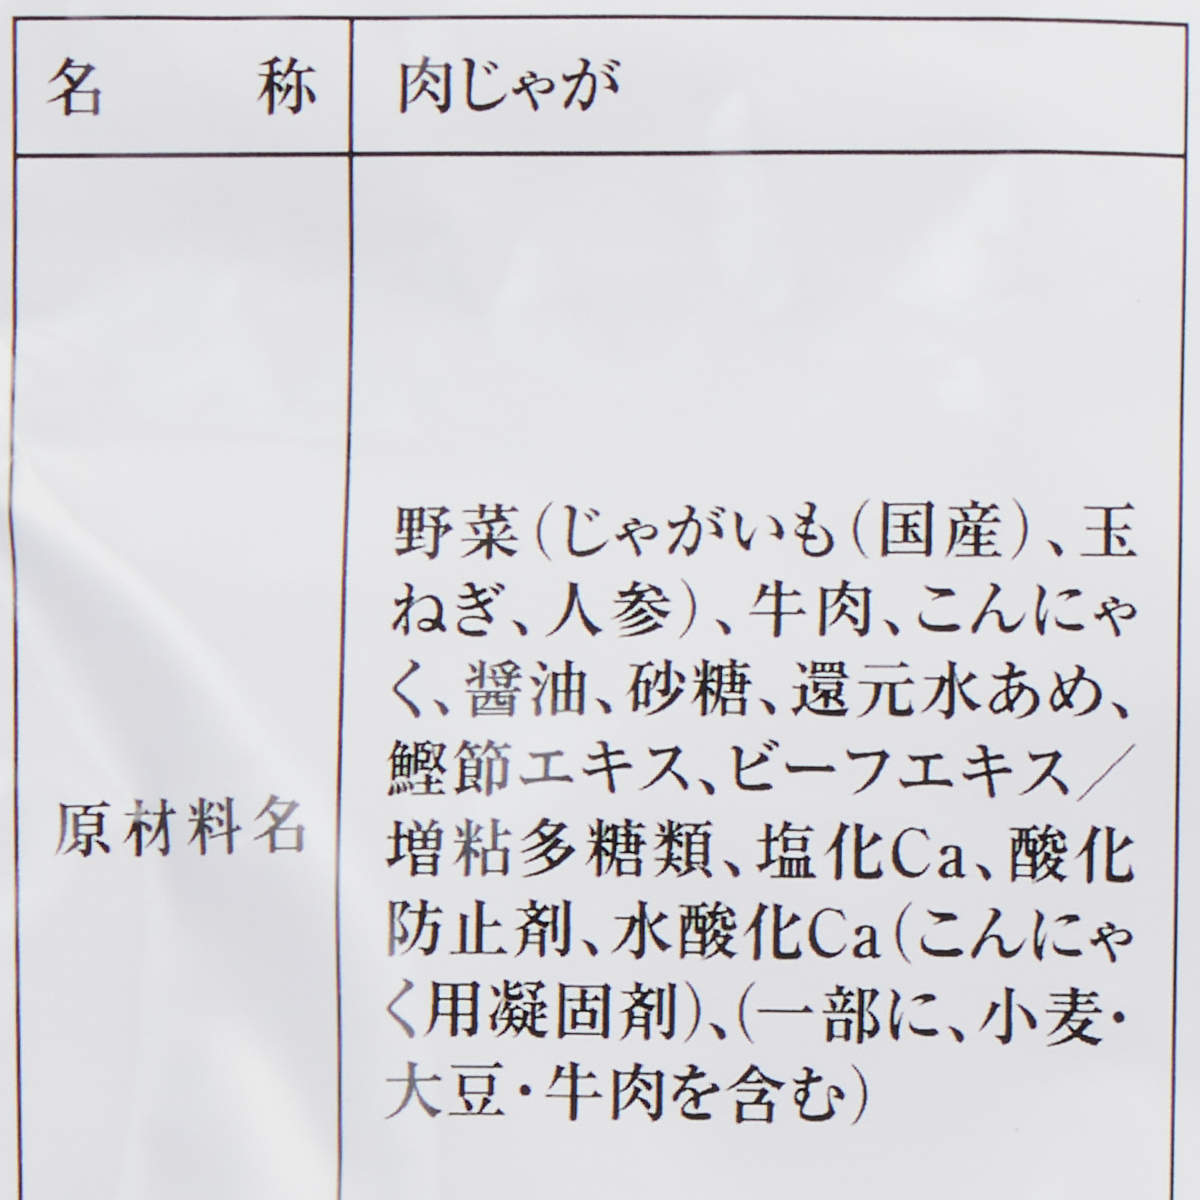 名称 肉じゃが
原材料名
野菜(じゃがいも(国産)、玉
ねぎ、人参)、牛肉、こんにゃ
く、醤油、砂糖、還元水あめ、
鰹節エキス、ビーフエキス／
増粘多糖類、塩化Ca、酸化
防止剤、水酸化Ca(こんにゃ
く用凝固剤)、(一部に、小麦・
大豆・牛肉を含む)